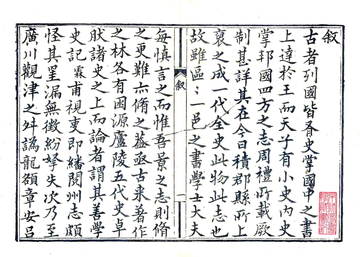 叙
古者列國皆有史掌國中之書
上達於王而天子有小史內史
掌邦國四方之志周禮所載厥
制甚詳其在今日積郡縣所上
裒之成一代全史此物此志也
故雖區〻一邑之書學士大夫
叙
每慎言之而惟吾景之志則脩
之更難六脩之蓋亟古来著作
之林各有困源廬陵五代史卓
肰諸史之上而論者謂其善學
史記甫視即繙閱州志頗
怪其罣漏無徵紛拏失次乃至
廣川觀津之舛譌龍頟章安呂